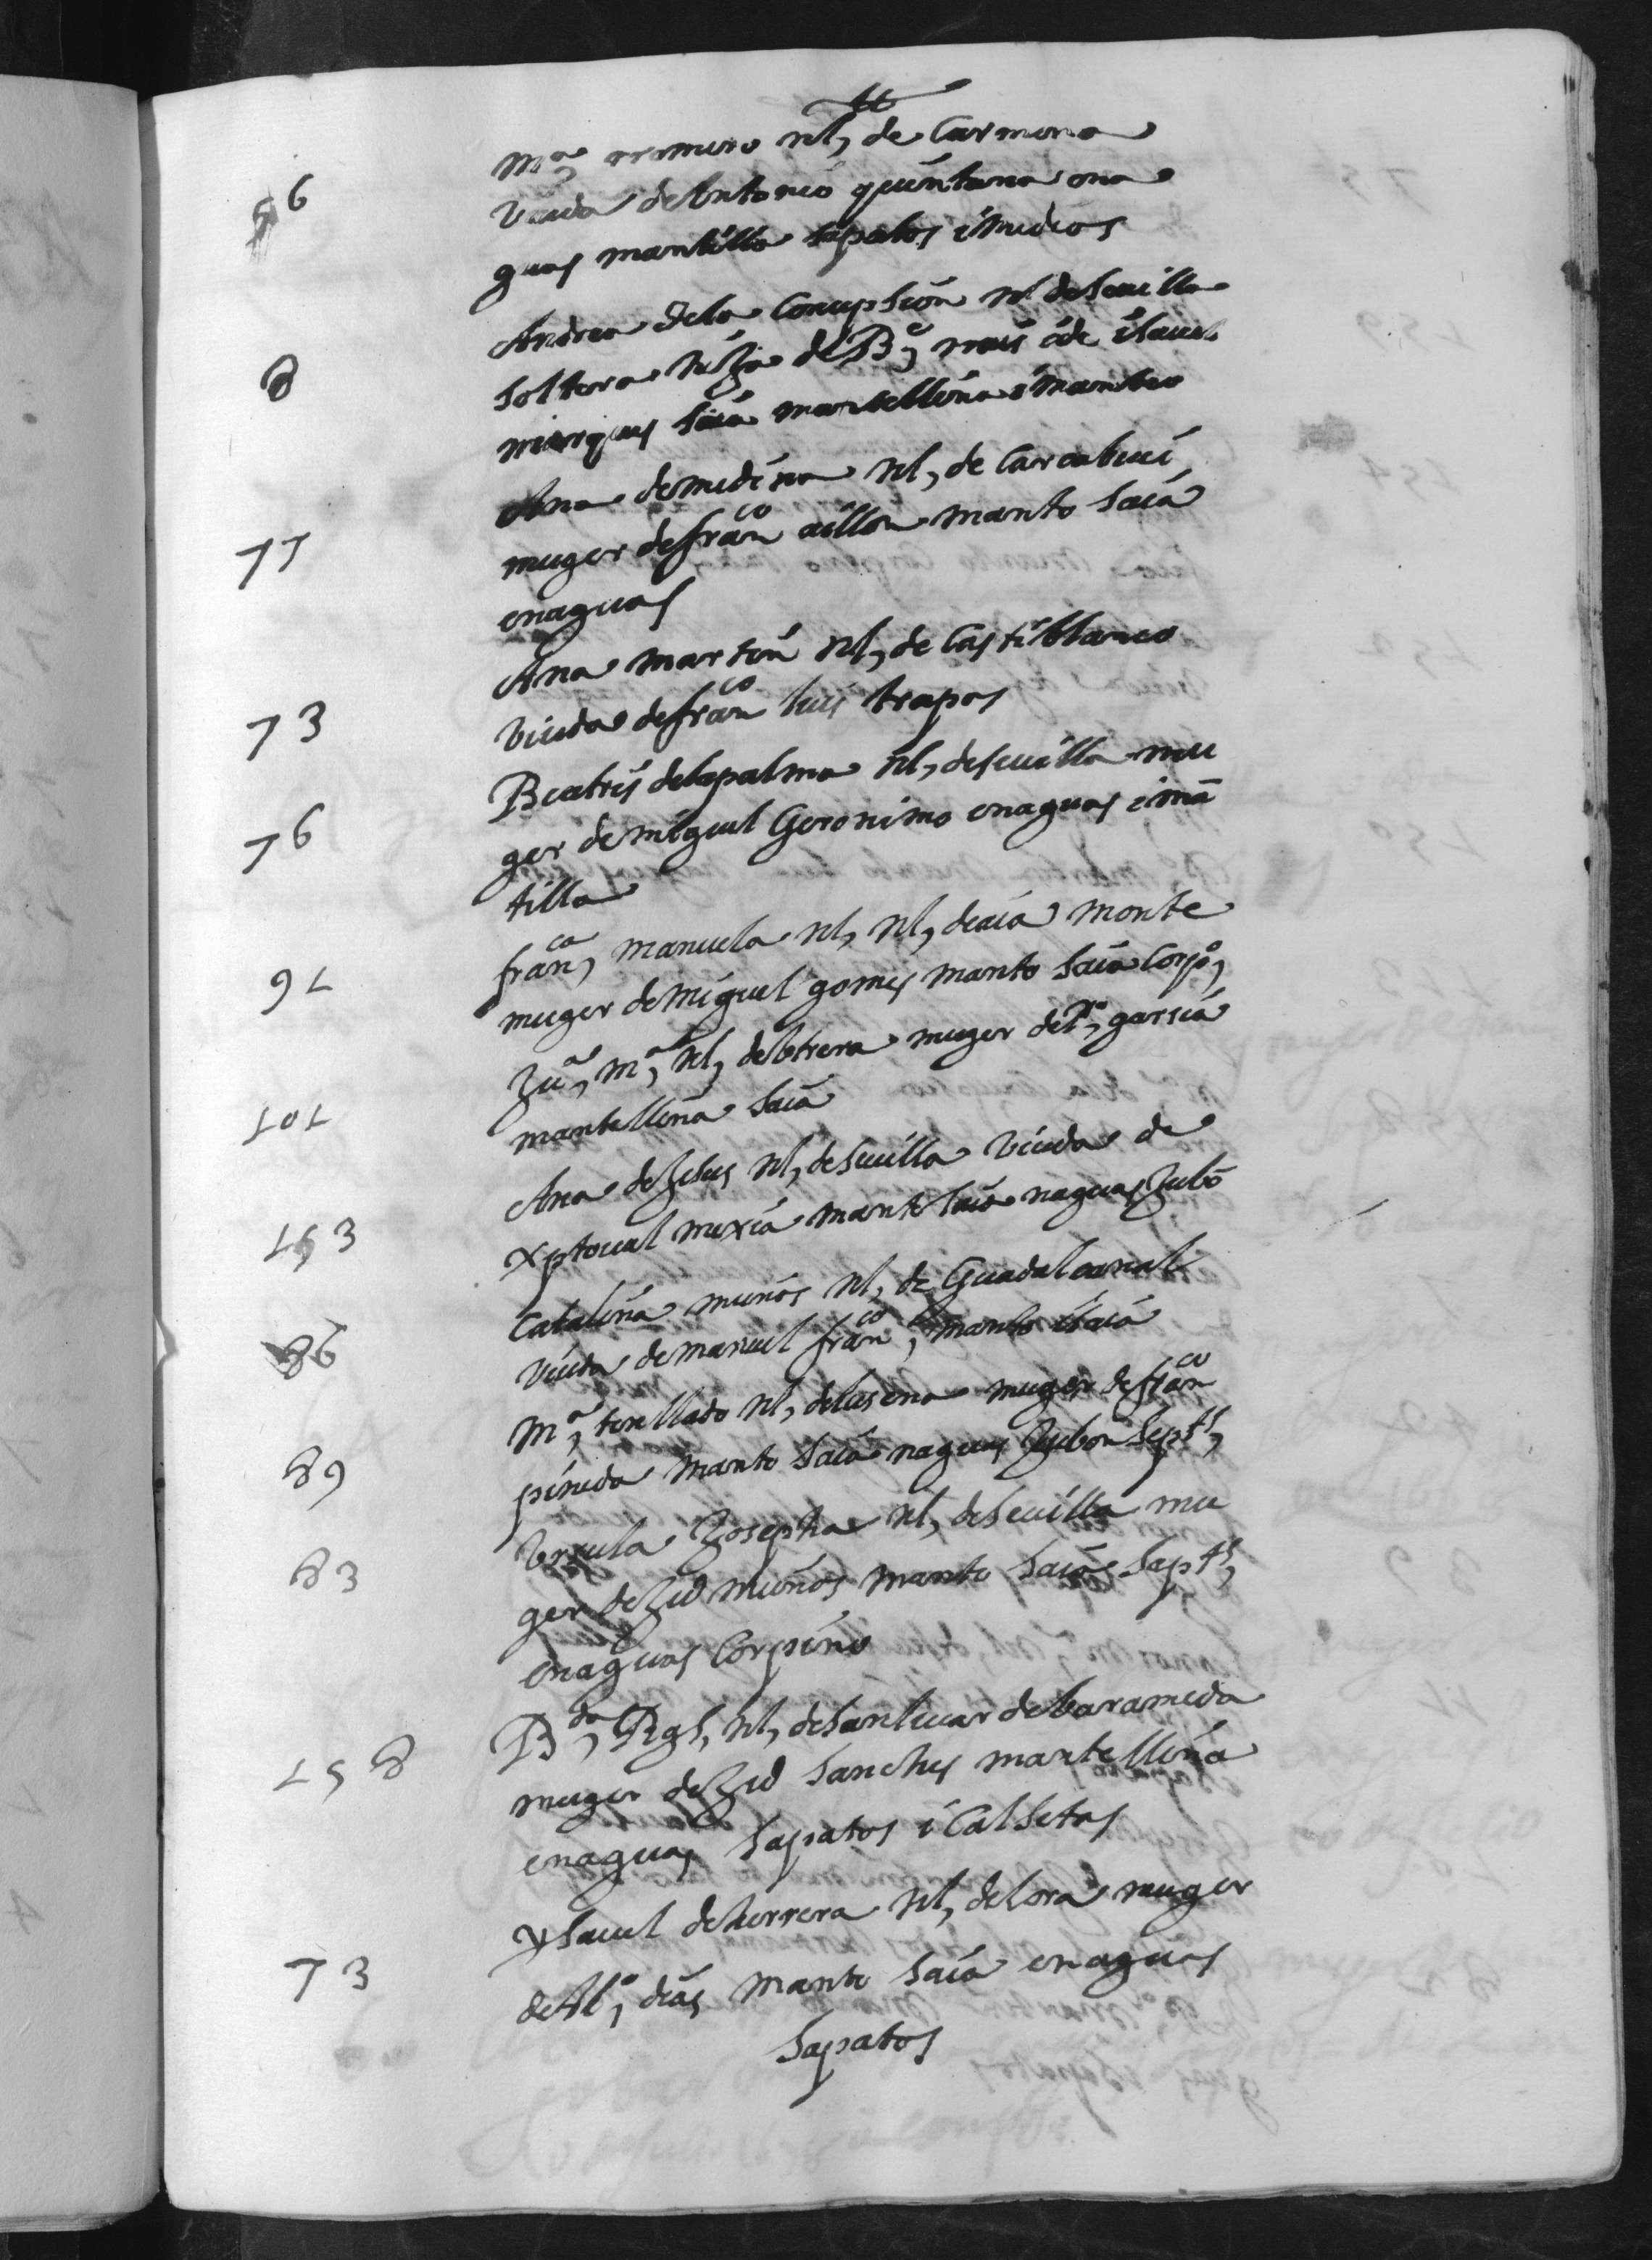 Mª, rromero nl, de Carmona
56 Viuda de Antonio quintana ena
guas mantilla sapatos i medias
Andrea de la Consepsion nl de Seuilla
8 soltera hiJa de Bᵉ, i de isauel
marques saia mantellina i manteo
Ana de medina nl, de Carcabuei
11 muger de franᶜᵒ aillon manto saia
enaguas
Ana martin nl, de Castiblanco
13 Viuda de franᶜᵒ luis trapos
Beatris de la palma nl, de seuilla mu
16 ger de miguel Geronimo enaguas i mā
tilla
franᶜᵃ, manuela nl, nl, de aia monte
91 muger de miguel gomes manto saia Corpº,
Juª, mª, nl, de Vtrera muger de garsia
101 mantellina saia
Ana de Jesus nl, de seuilla Viuda de
153 xptoual mexia manto saia naguas Jubō
Catalina muños nl, de Guadalcanal
86 Viuda de manuel franᶜᵒ, manto i saia
Mª, torellado nl, de lusena muger de franᶜᵒ
89 pineda manto saia naguas Jubon sapᵗˢ,
Vrsula Josepha nl, de Seuilla mu
83 ger de Juº muños manto saia sapᵗˢ,
enaguas Corpino
Bᵈᵃ, Rgs, nl, de Sanlucar de barameda
158 muger de Juº sanches mantellina
enaguas sapatos i Calsetas
Ysauel de herrera nl, de lora muger
13 de Alº, dias manto saia enaguas
sapatos